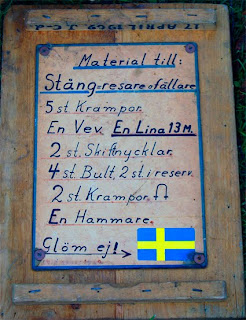 17 APRIL 1966 J.C.J.
Material till:
Stäng=resare o fällare
5 st. Krampor.
En Vev. En Lina 13 M.
2 st. Skiftnycklar.
4 st. Bult, 2 st. i reserv.
2 st. Krampor.
En Hammare.
Glöm ej! →